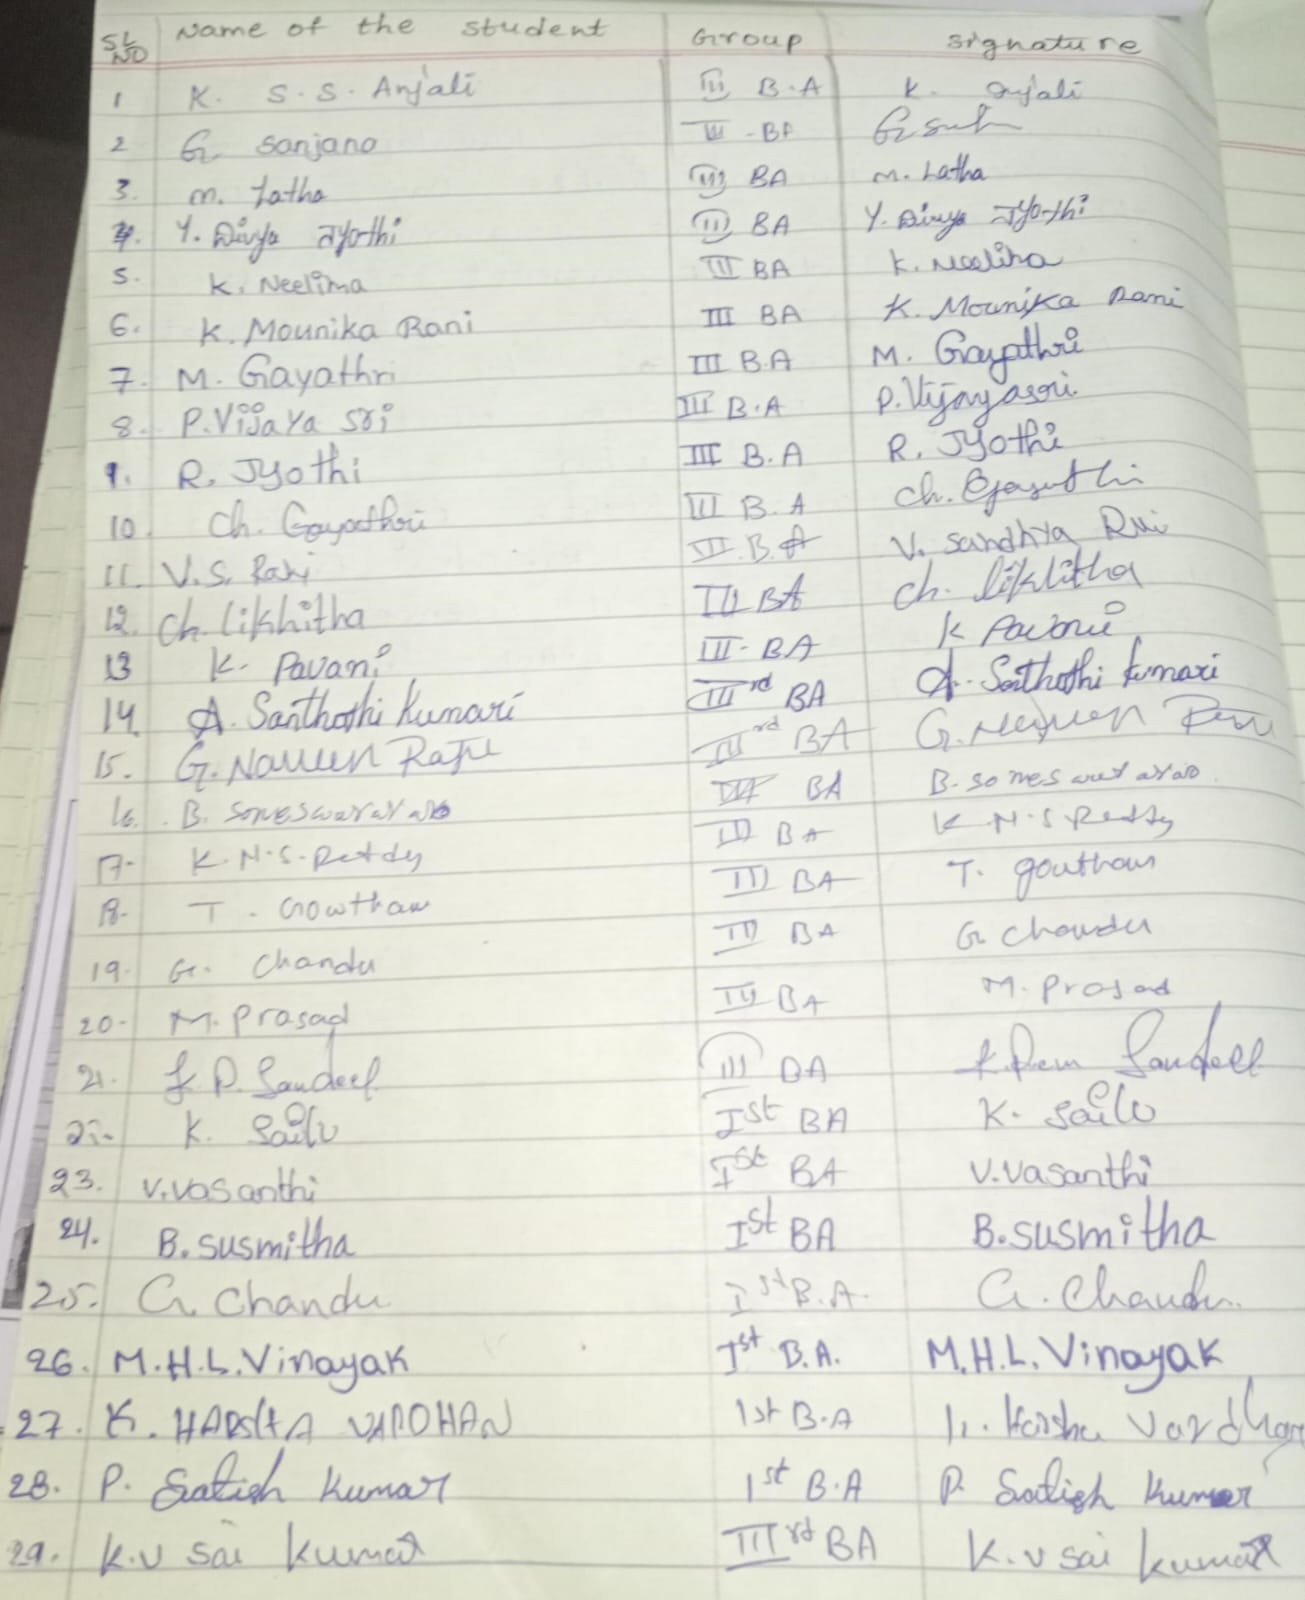 SL NO Name of the student Group Signature
1 K. S. S. Anjali III B.A K. Anjali
2 G. Sanjana III - BA G
3. M. Latha III BA M. Latha
4. Y. Divya Jyothi III BA Y. Divya Jyothi
5. K. Neelima III BA K. Neelima
6. K. Mounika Rani III BA K. Mounika Rani
7. M. Gayathri III B.A M. Gayathri
8. P. Vijaya Sri III B.A P. Vijayasri
9. R. Jyothi III B.A R. Jyothi
10. Ch. Gayathri III B.A Ch. Gayathri
11. V.S. Rani III B.A V. Sandhya Rani
12. Ch. Likhitha III BA Ch. Likhitha
13 K. Pavani III - BA K Pavani
14. A. Santhoshi Kumari III rd BA A. Santhoshi Kumari
15. G. Naveen Raju III rd BA G. Naveen Raju
16. B. Someswararao III BA B. Someswararao
17- K.N.S. Reddy III BA K.N.S Reddy
18- T. Gowtham III BA T. goutham
19- G. Chandu III BA G Chandu
20- M. Prasad III BA M. Prasad
21. P. Sandeep III BA Prem Sandeep
22. K. Sailu Ist BA K. Sailu
23. V. Vasanthi Ist BA V. Vasanthi
24. B. Susmitha Ist BA B. Susmitha
25. G. Chandu Ist B.A. G. Chandu
26. M.H.L. Vinayak Ist B.A. M.H.L. Vinayak
27. K. HARSHA VARDHAN 1st B.A K. Harsha Vardhan
28. P. Satish Kumar 1st B.A P. Satish Kumar
29. K.V Sai Kumar III rd BA K.V Sai Kumar